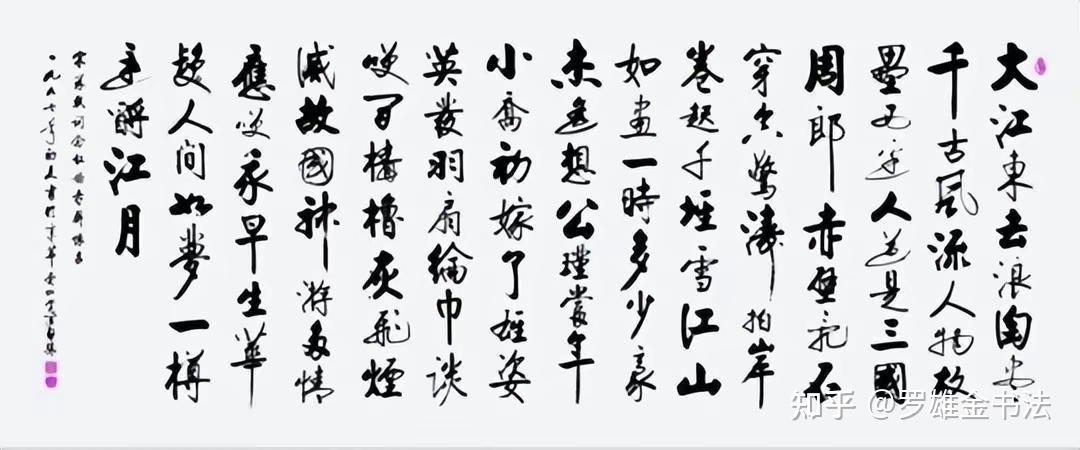 大江東去浪淘尽
千古風流人物故
壘西邊人道是三國
周郎赤壁亂石
穿空驚濤拍岸
卷起千堆雪江山
如畫一時多少豪
杰遙想公瑾當年
小喬初嫁了雄姿
英發羽扇綸巾談
笑間檣櫓灰飛煙
滅故國神游多情
應笑我早生華
髮人間如夢一樽
還酹江月
宋蘇軾詞念奴嬌赤壁懷古
一九九七年初夏書於京華
知乎 @罗雄金书法